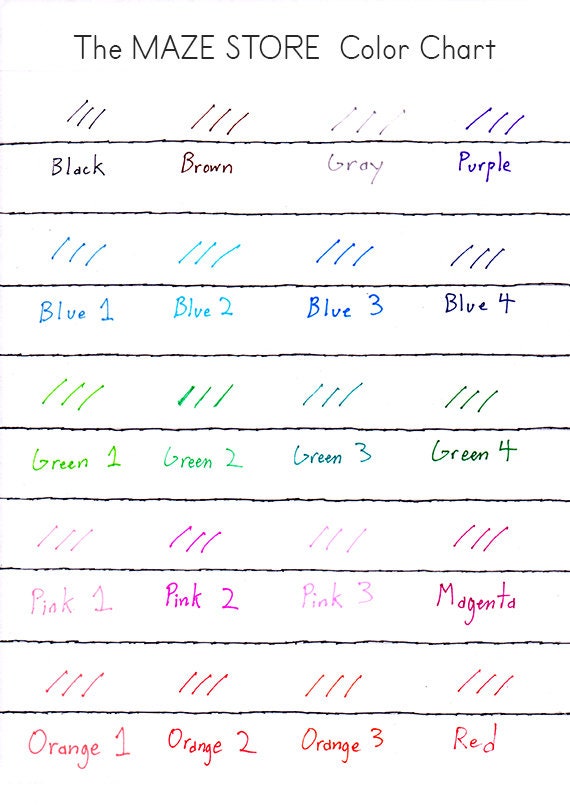 The MAZE STORE Color Chart
Black Brown Gray Purple
Blue 1 Blue 2 Blue 3 Blue 4
Green 1 Green 2 Green 3 Green 4
Pink 1 Pink 2 Pink 3 Magenta
Orange 1 Orange 2 Orange 3 Red